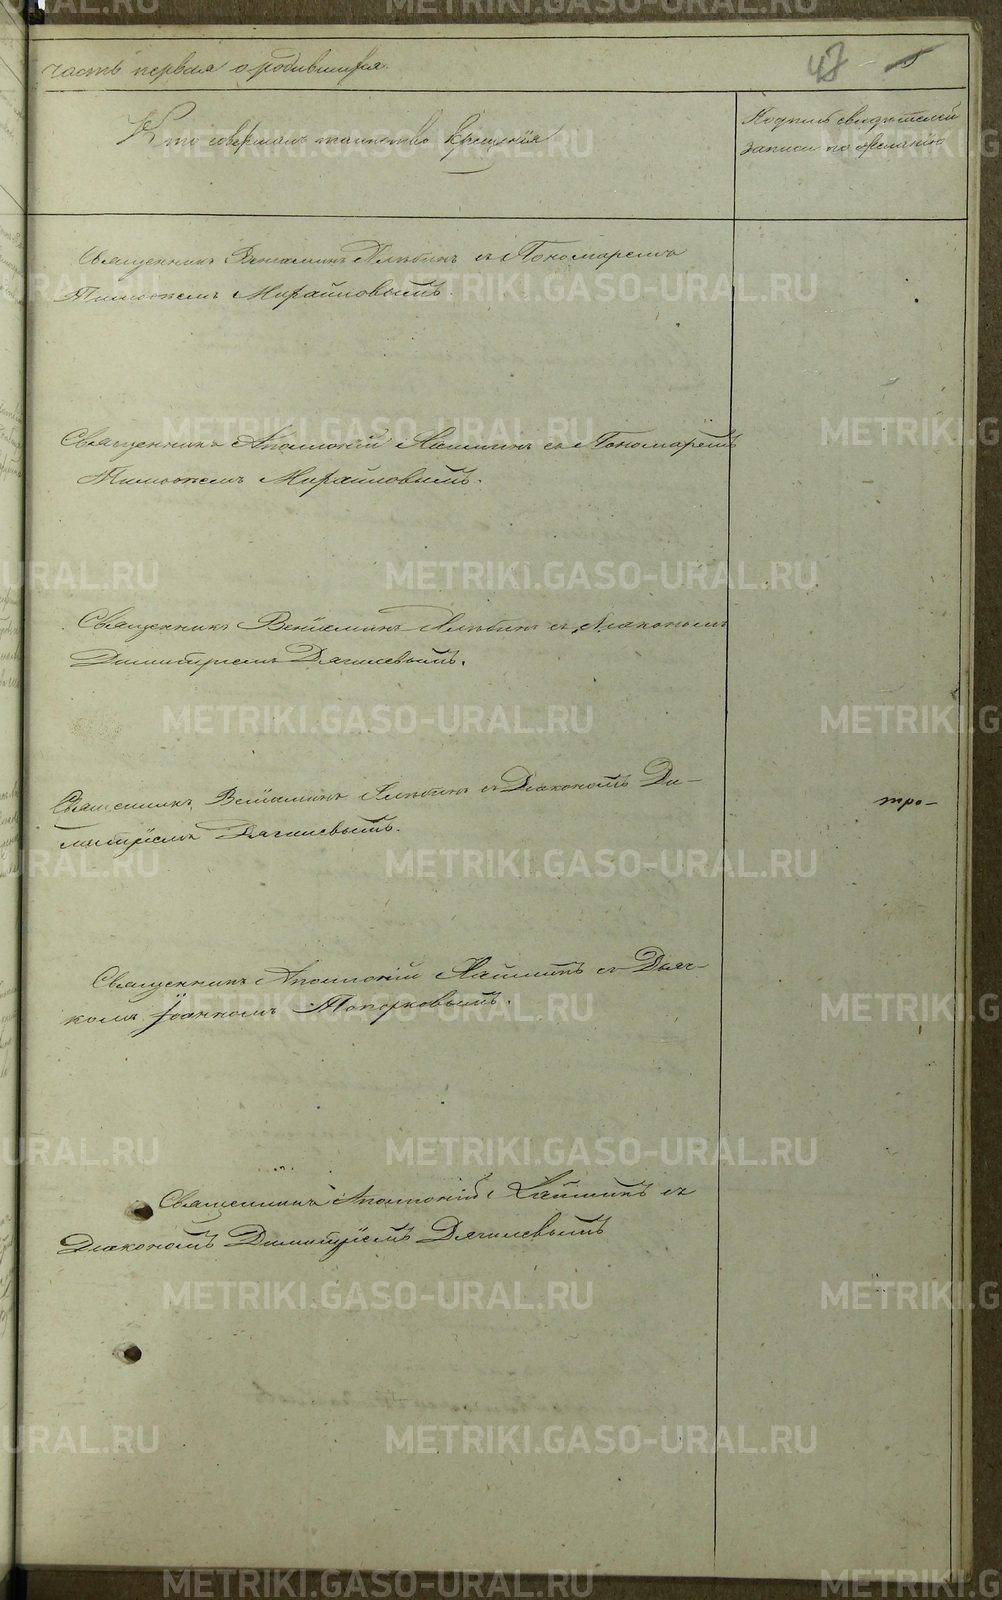 часть первая о родившихся.
47 5
Кто совершалъ таинство крещенія
Подпись свидетелей
записи по желанію
Священникъ Веніаминъ с Пономаремъ
Тимофеемъ Михайловымъ.
Священникъ Аполлоній съ Пономаремъ
Тимофеемъ Михайловымъ.
Священникъ Веніаминъ съ Діакономъ
Димитріемъ Дягилевымъ.
Священникъ Веніаминъ съ Діакономъ Ди-
митріемъ Дягилевымъ.
тро-
Священникъ Аполлоній съ Дьяч-
комъ Іоанномъ Топорковымъ.
Священникъ Аполлоній съ
Діакономъ Димитріемъ Дягилевымъ
METRIKI.GASO-URAL.RU